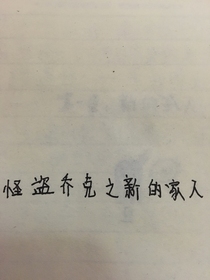 怪盗乔克之新的家人